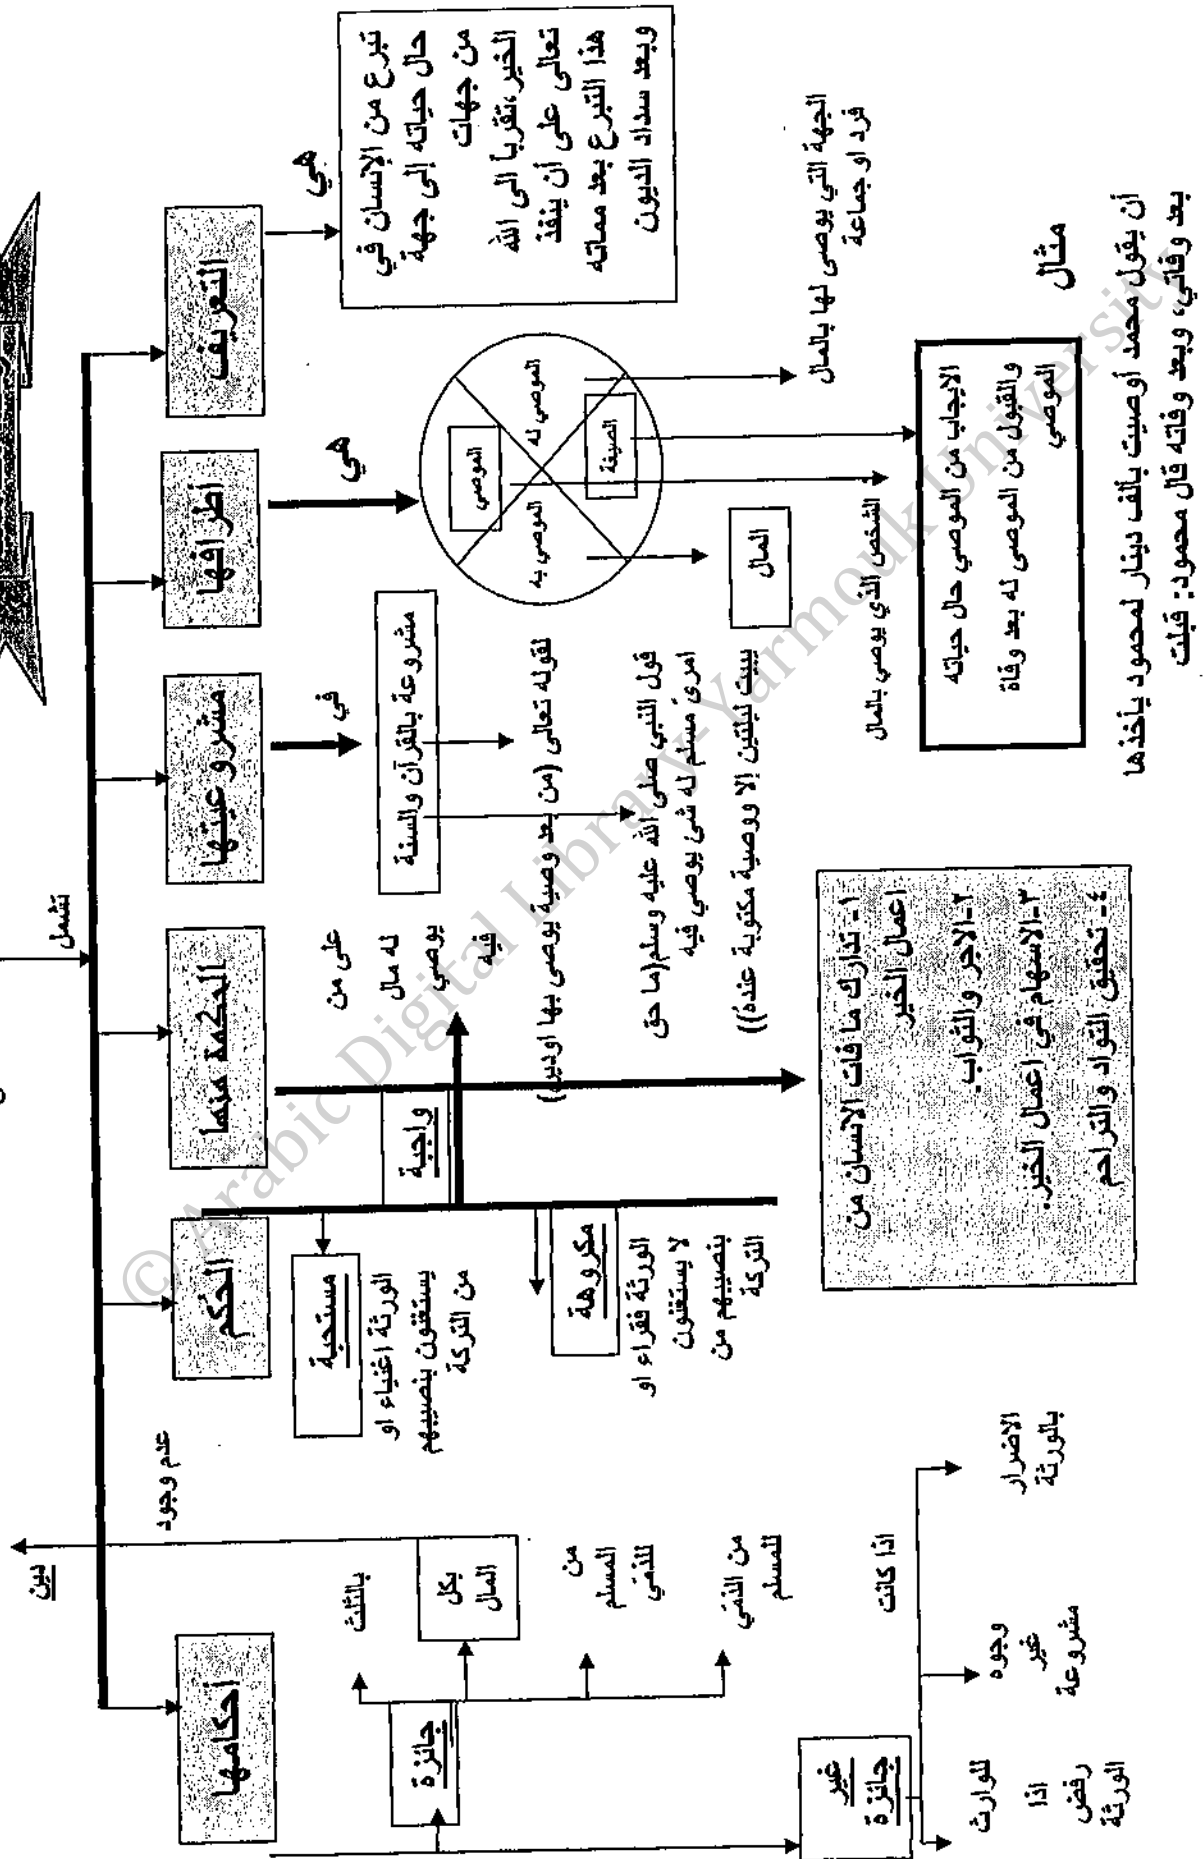 تشمل
التعريف
هي
تبرع من الإنسان في
حال حياته إلى جهة
من جهات
الخير،تقرباً الى الله
تعالى على أن ينفذ
هذا التبرع بعد مماته
وبعد سداد الديون
أطرافها
هي
الموصي
الموصي له
الموصي به
الصيغة
الجهة التي يوصى لها بالمال
فرد او جماعة
المال
الشخص الذي يوصي بالمال
الايجاب من الموصي حال حياته
والقبول من الموصى له بعد وفاة
الموصي
مثال
أن يقول محمد أوصيت بألف دينار لمحمود يأخذها
بعد وفاتي، وبعد وفاته قال محمود: قبلت
مشروعيتها
في
مشروعة بالقرآن والسنة
لقوله تعالى (من بعد وصية يوصى بها اودين)
قول النبي صلى الله عليه وسلم(ما حق
امرئ مسلم له شئ يوصي فيه
يبيت ليلتين إلا ووصية مكتوبة عنده))
الحكمة منها
١- تدارك ما فات الانسان من
اعمال الخير
٢-الاجر والثواب.
٣-الاسهام في اعمال الخير.
٤- تحقيق التواد والتراحم
الحكم
واجبة
على من
له مال
يوصي
فيه
مستحبة
الورثة اغنياء او
يستغنون بنصيبهم
من التركة
مكروهة
الورثة فقراء او
لا يستغنون
بنصيبهم من
التركة
أحكامها
جائزة
بالثلث
بكل
المال
عدم وجود
دين
من
المسلم
للذمي
من الذمي
للمسلم
غير
جائزة
اذا كانت
الاضرار
بالورثة
وجوه
غير
مشروعة
للوارث
اذا
رفض
الورثة
© Arabic Digital Library-Yarmouk University